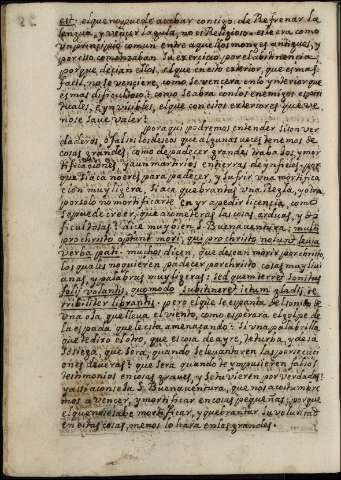 el que no puede acabar consigo, de Refrenar la
lengua, y vencer la gula, no es Religioso. este era como
un principio comun entre aquellos monges antiguos, y
por ello comenzaban su exercicio, por el abstinencia,
porque decian ellos, el que en esto exterior, que es mas
facil, no se venciere, como se vencera en lo ynterior que
es mas dificultoso? como se abra con los enemigos espiri
tuales, e ynvisibles, el que con estos exteriores que ve
no se save valer?
por aqui podremos entender si son ver
daderos, o falsos los deseos que algunas veces tenemos de
cosas grandes, como de padecer grandes trabajos, y mor
tificaciones, y aun martirios en tierras de ynfieles, por
que si aca no eres para padecer, y sufrir una mortifica
cion muy ligera, si aca quebrantas una Regla, y otra
por solo no mortificarte en yr a pedir licencia, como
se puede creer, que acometeras las cosas arduas, y di
ficultosas? dice muy bien S. Buenaventura: multi
pro christo optant mori, qui pro christo nolunt levia
verba pati. muchos dicen, que desean morir por christo,
los quales no quieren padecer por christo cosas muy livi
anas, y palabras muy ligeras: sed quem terret sonitus
folij volantis, quomodo sustineret ictum gladij te
rribiliter librantis. pero el que se espanta del sonido de
una oja que lleva el viento, como esperara el golpe de
la espada que le esta amenazando? si una palabrilla
que te dixo el otro, que es cosa de ayre, te turba, y desa
sosiega, que sera, quando se levantaren las persecuci
ones de veras? que sera quando te ympusieren falsos
testimonios en cosas graves, y se tuvieren por verdades?
y assi aconseja S. Buenaventura, que nos acostumbre
mos a vencer, y mortificar en cosas pequeñas, porque
el que no se sabe mortificar, y quebrantar su voluntad
en estas cosas, menos lo hara en las grandes.